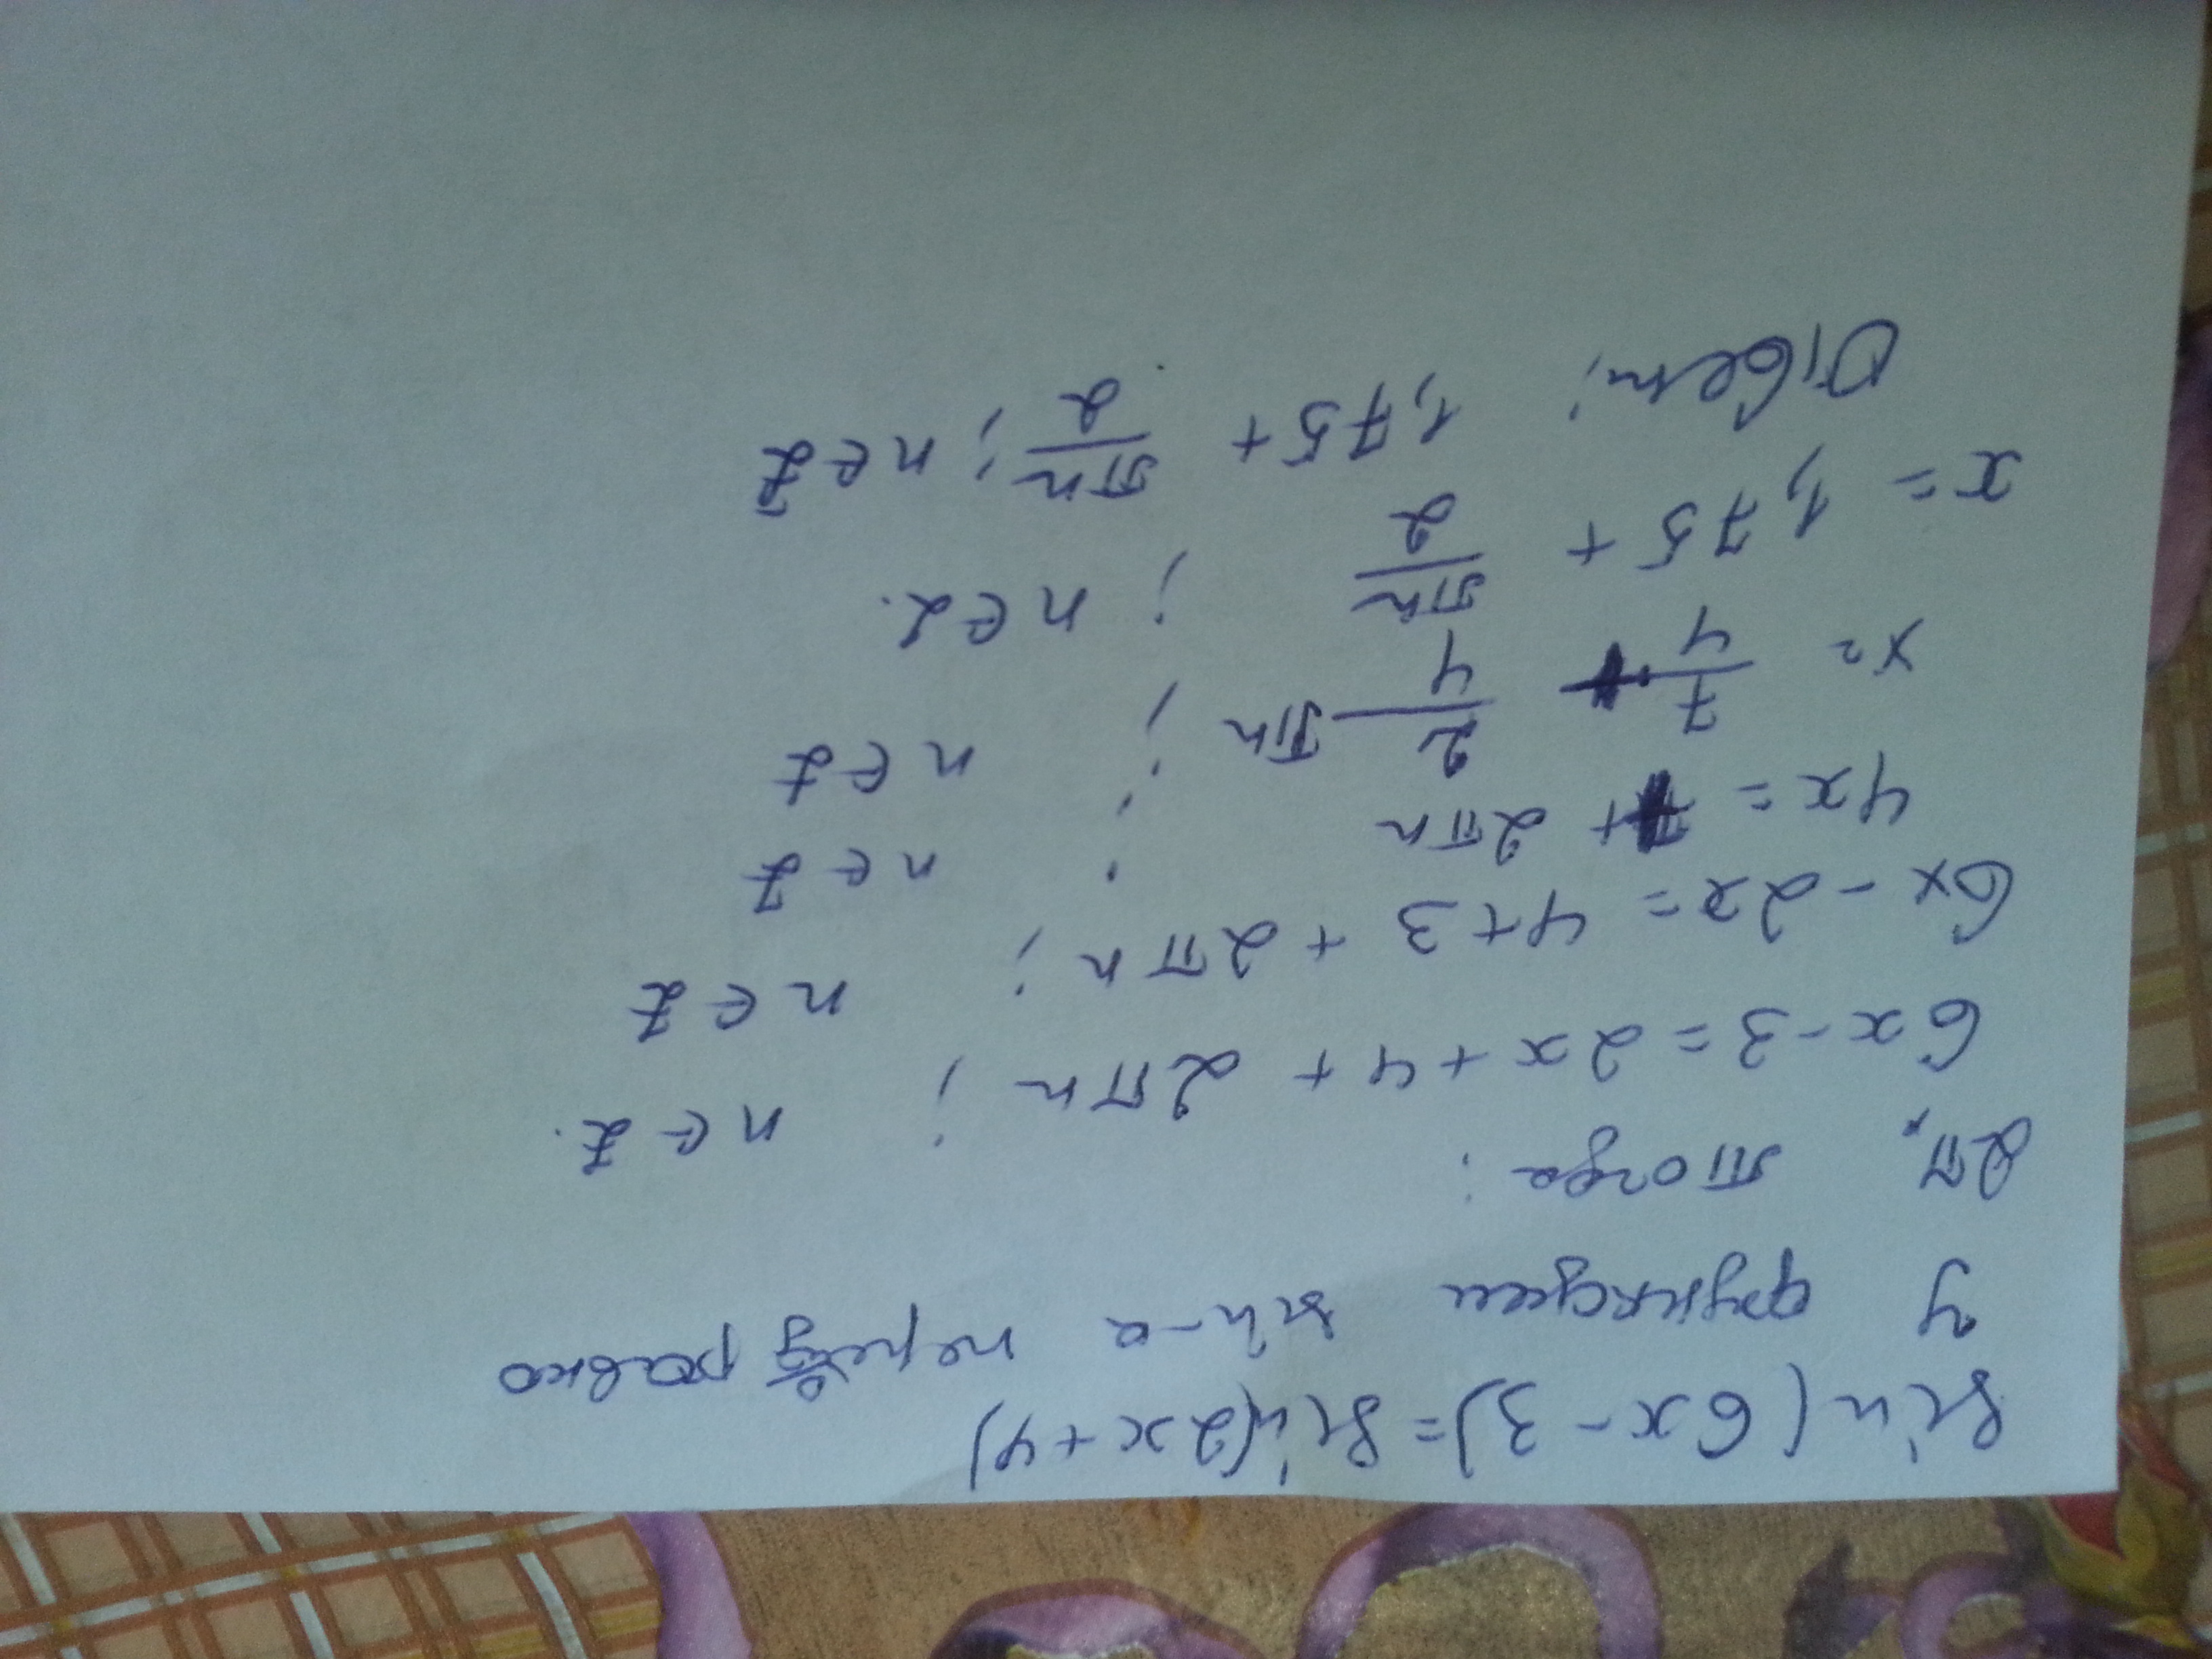 sin(6x-3)=sin(2x+4)
У функции sin-a период равно
2π, тогда:
6x-3=2x+4+2πn; n∈Z.
6x-2x=4+3+2πn; n∈Z
4x=7+2πn; n∈Z
x=7/4+2/4πn; n∈Z
x=1,75+πn/2; n∈Z.
Ответ: 1,75+πn/2; n∈Z